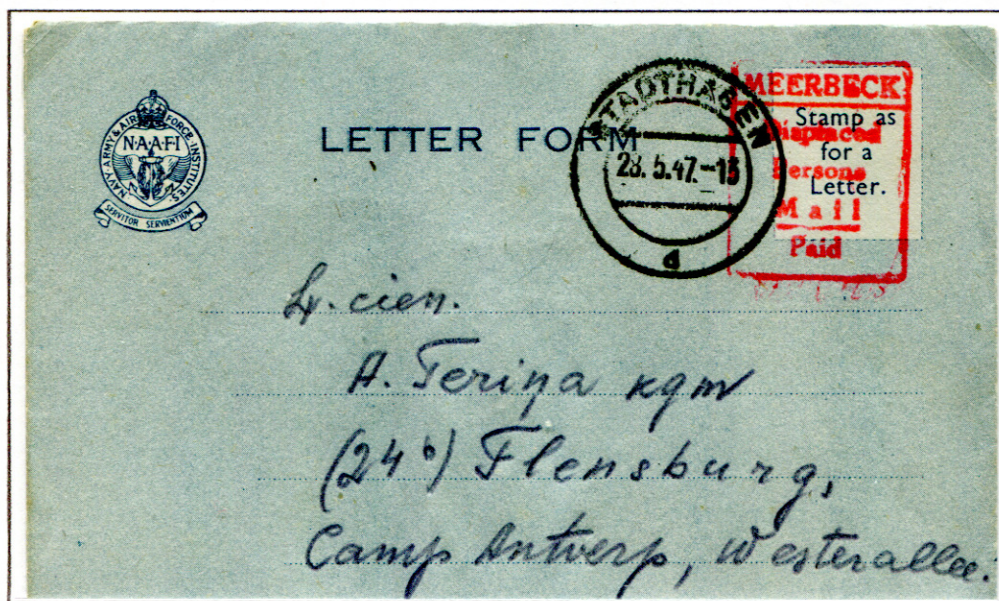 NAVY, ARMY & AIR FORCE INSTITUTES.
N·A·A·F·I
SERVITOR SERVIENTIUM
LETTER FORM
STADTHAGEN
28.5.47.-13
d
MEERBECK
Displaced
Persons
Mail
Paid
Stamp as
for a
Letter.
A. Teriņa kgm
(24b) Flensburg,
Camp Antverp, Westerallee.